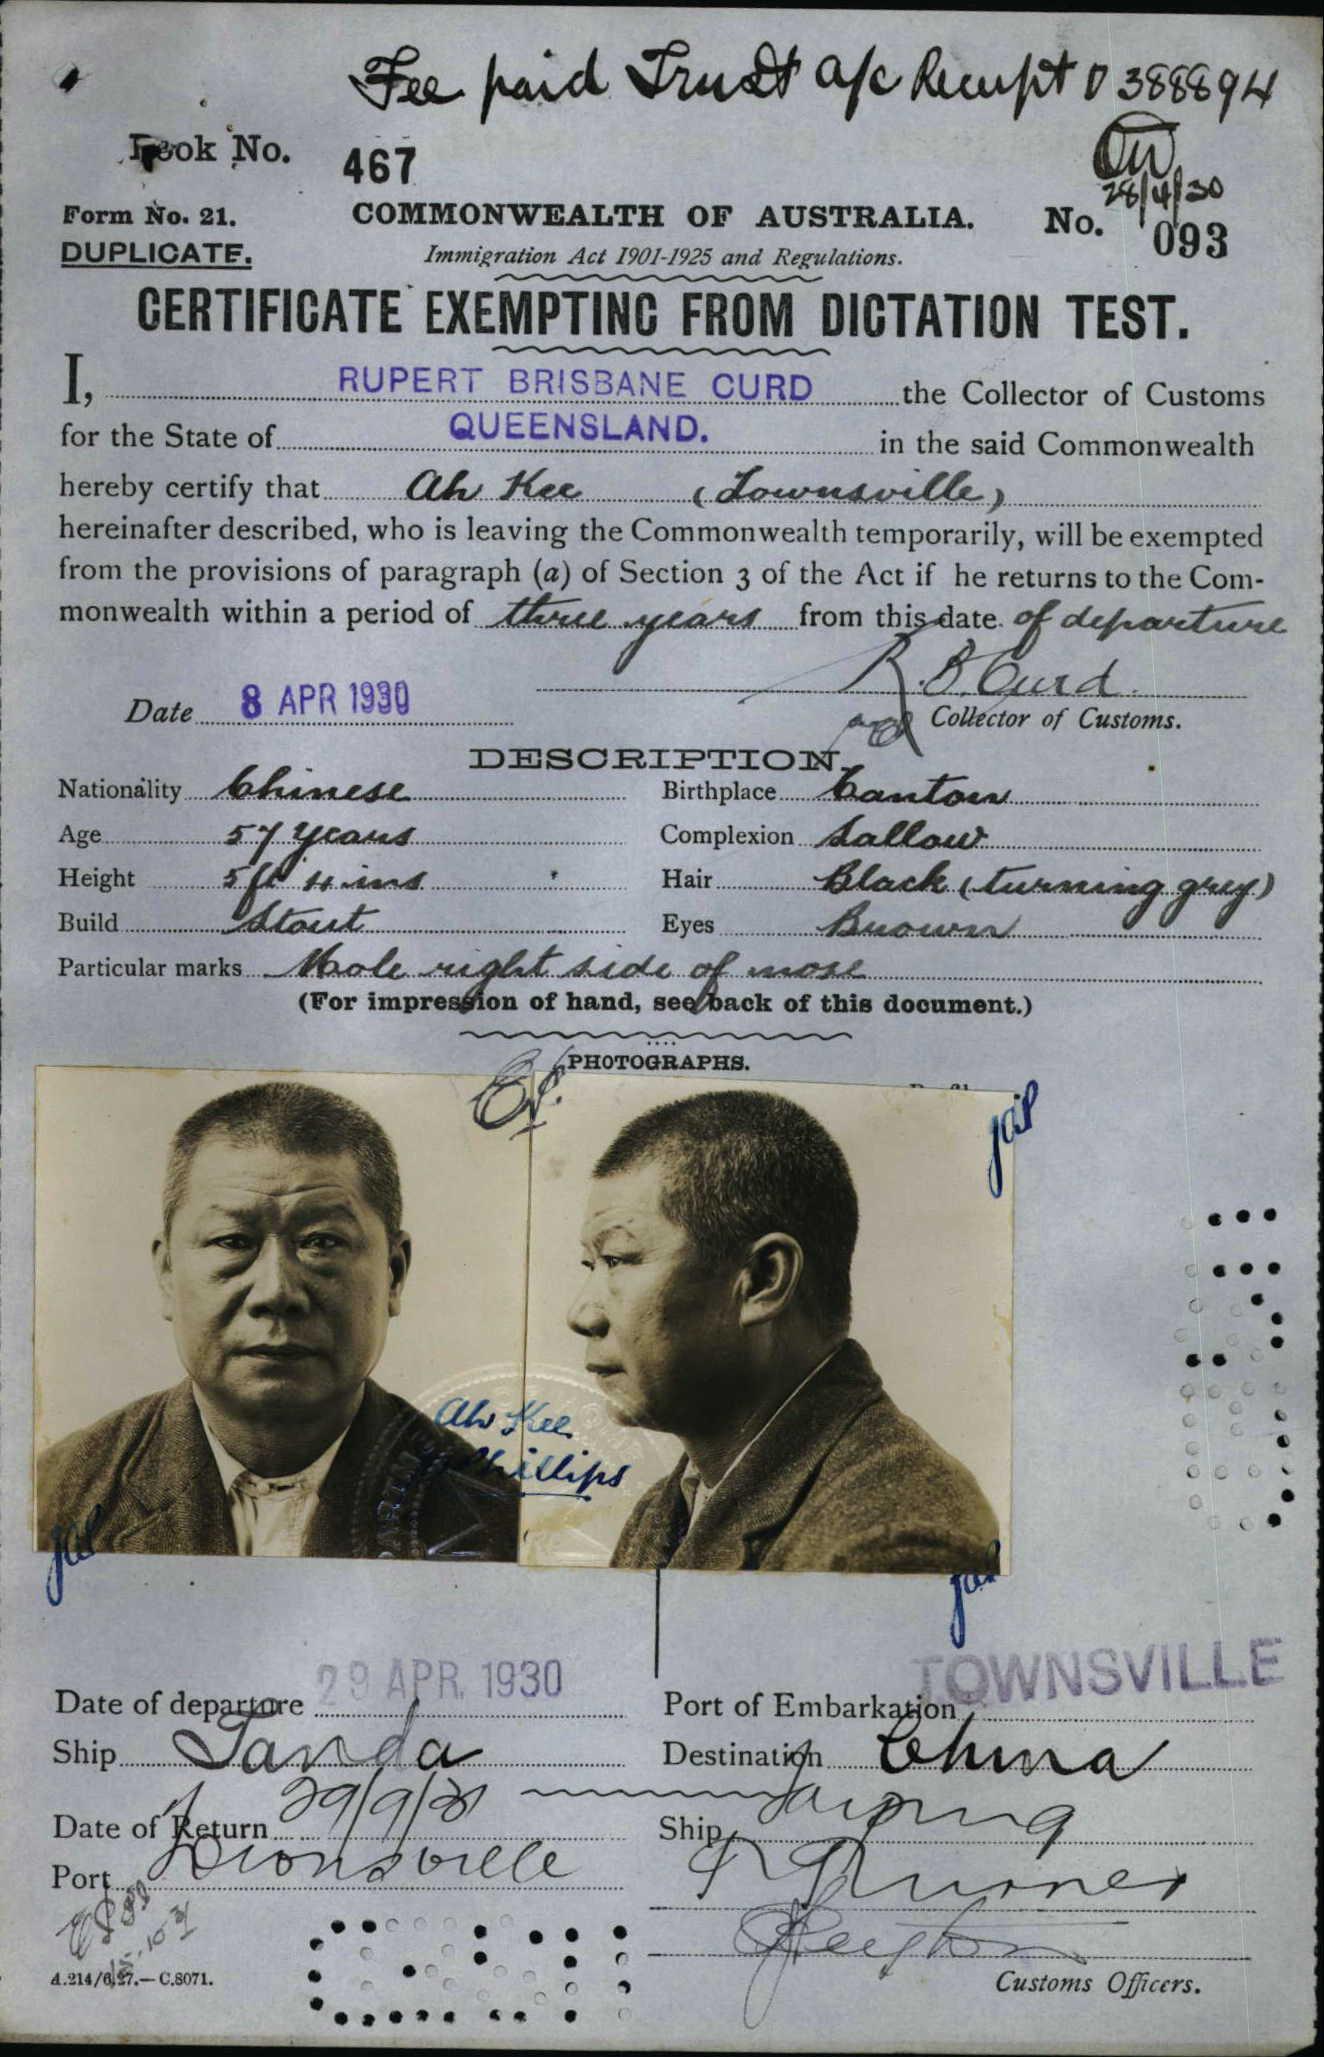 Fee paid Trust a/c Receipt D 388894
Book No. 467
28/4/30
Form No. 21.
COMMONWEALTH OF AUSTRALIA.
No. 093
DUPLICATE.
Immigration Act 1901-1925 and Regulations.
CERTIFICATE EXEMPTING FROM DICTATION TEST.
I, RUPERT BRISBANE CURD the Collector of Customs
for the State of QUEENSLAND. in the said Commonwealth
hereby certify that Ah Kee (Townsville)
hereinafter described, who is leaving the Commonwealth temporarily, will be exempted
from the provisions of paragraph (a) of Section 3 of the Act if he returns to the Com-
monwealth within a period of three years from this date of departure
R. B. Curd.
Date 8 APR 1930
Collector of Customs.
DESCRIPTION.
Nationality Chinese Birthplace Canton
Age 57 years Complexion Sallow
Height 5 ft 4 ins Hair Black (turning grey)
Build Stout Eyes Brown
Particular marks Mole right side of nose
(For impression of hand, see back of this document.)
PHOTOGRAPHS.
Ah Kee
Phillips
Date of departure 29 APR. 1930 Port of Embarkation TOWNSVILLE
Ship Tanda Destination China
Date of Return 29/9/31 Ship Taiping
Port Townsville
A.214/6.27.—C.8071.
Customs Officers.